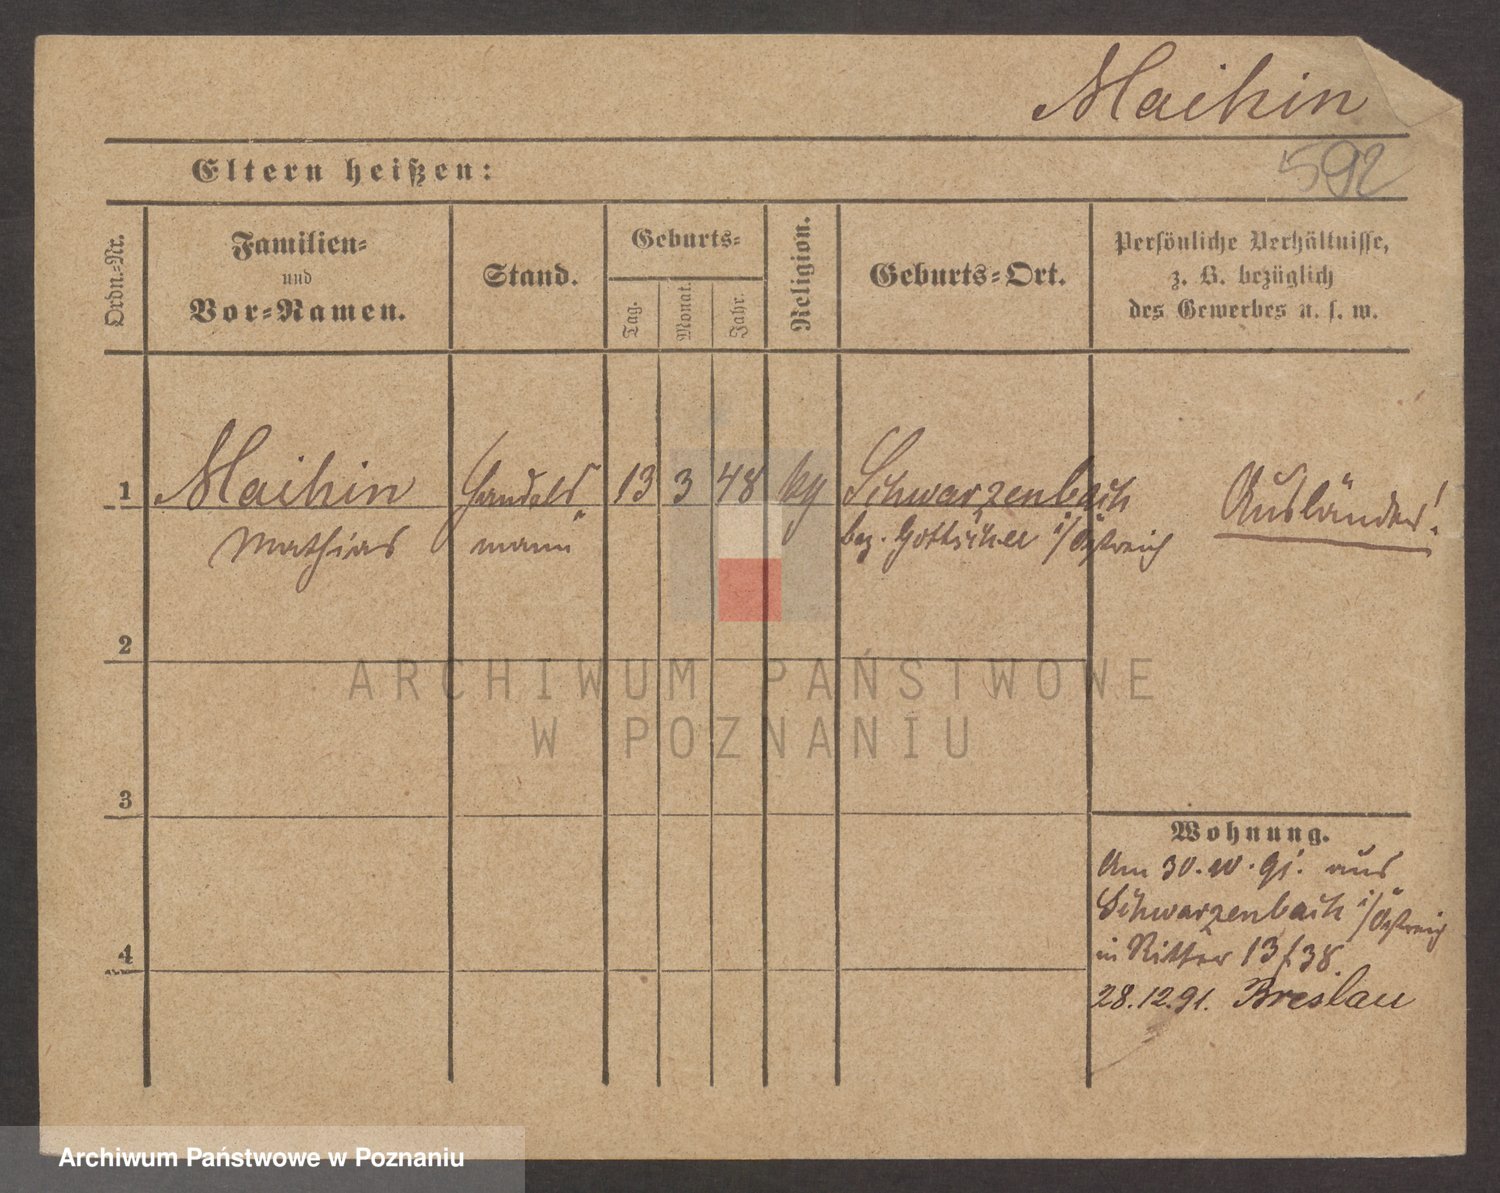 Maihin
592
Eltern heißen:
Ordn.-Nr.
Familien-
und
Vor-Namen.
Stand.
Geburts-
Tag.
Monat.
Jahr.
Religion.
Geburts-Ort.
Persönliche Verhältnisse,
z. B. bezüglich
des Gewerbes u. s. w.
1 Maihin Handels 13 3 48 kg Schwarzenbach Ausländer!
Mathias mann bez. Gottschee i/Östreich
2
3
4
Wohnung.
Am 30. 10. 91. aus
Schwarzenbach i/Östreich
in Ritter 13/38.
28.12.91. Breslau
ARCHIWUM PAŃSTWOWE
W POZNANIU
Archiwum Państwowe w Poznaniu